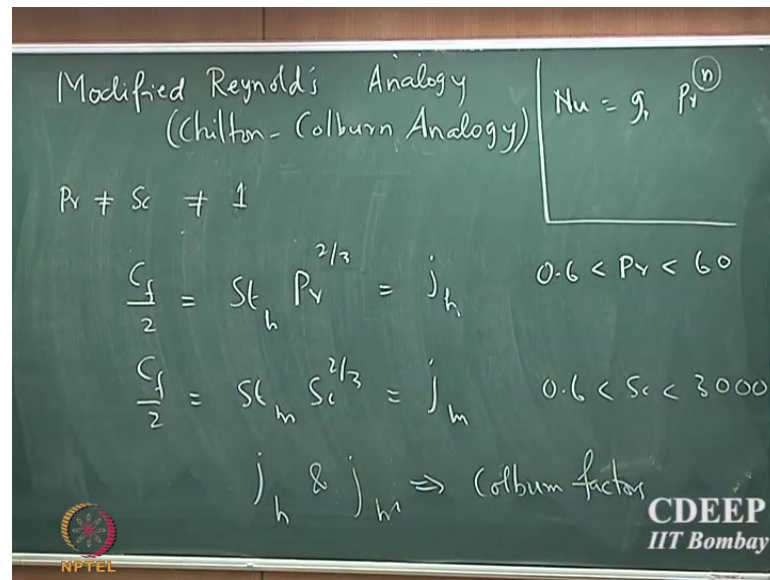 Modified Reynold's Analogy
(Chilton-Colburn Analogy)
Nu = g, Pr^n
Pr ≠ Sc ≠ 1
C_f/2 = St_h Pr^2/3 = j_h
0.6 < Pr < 60
C_f/2 = St_m Sc^2/3 = j_m
0.6 < Sc < 3000
j_h & j_m ⇒ Colburn factors
CDEEP
IIT Bombay
NPTEL